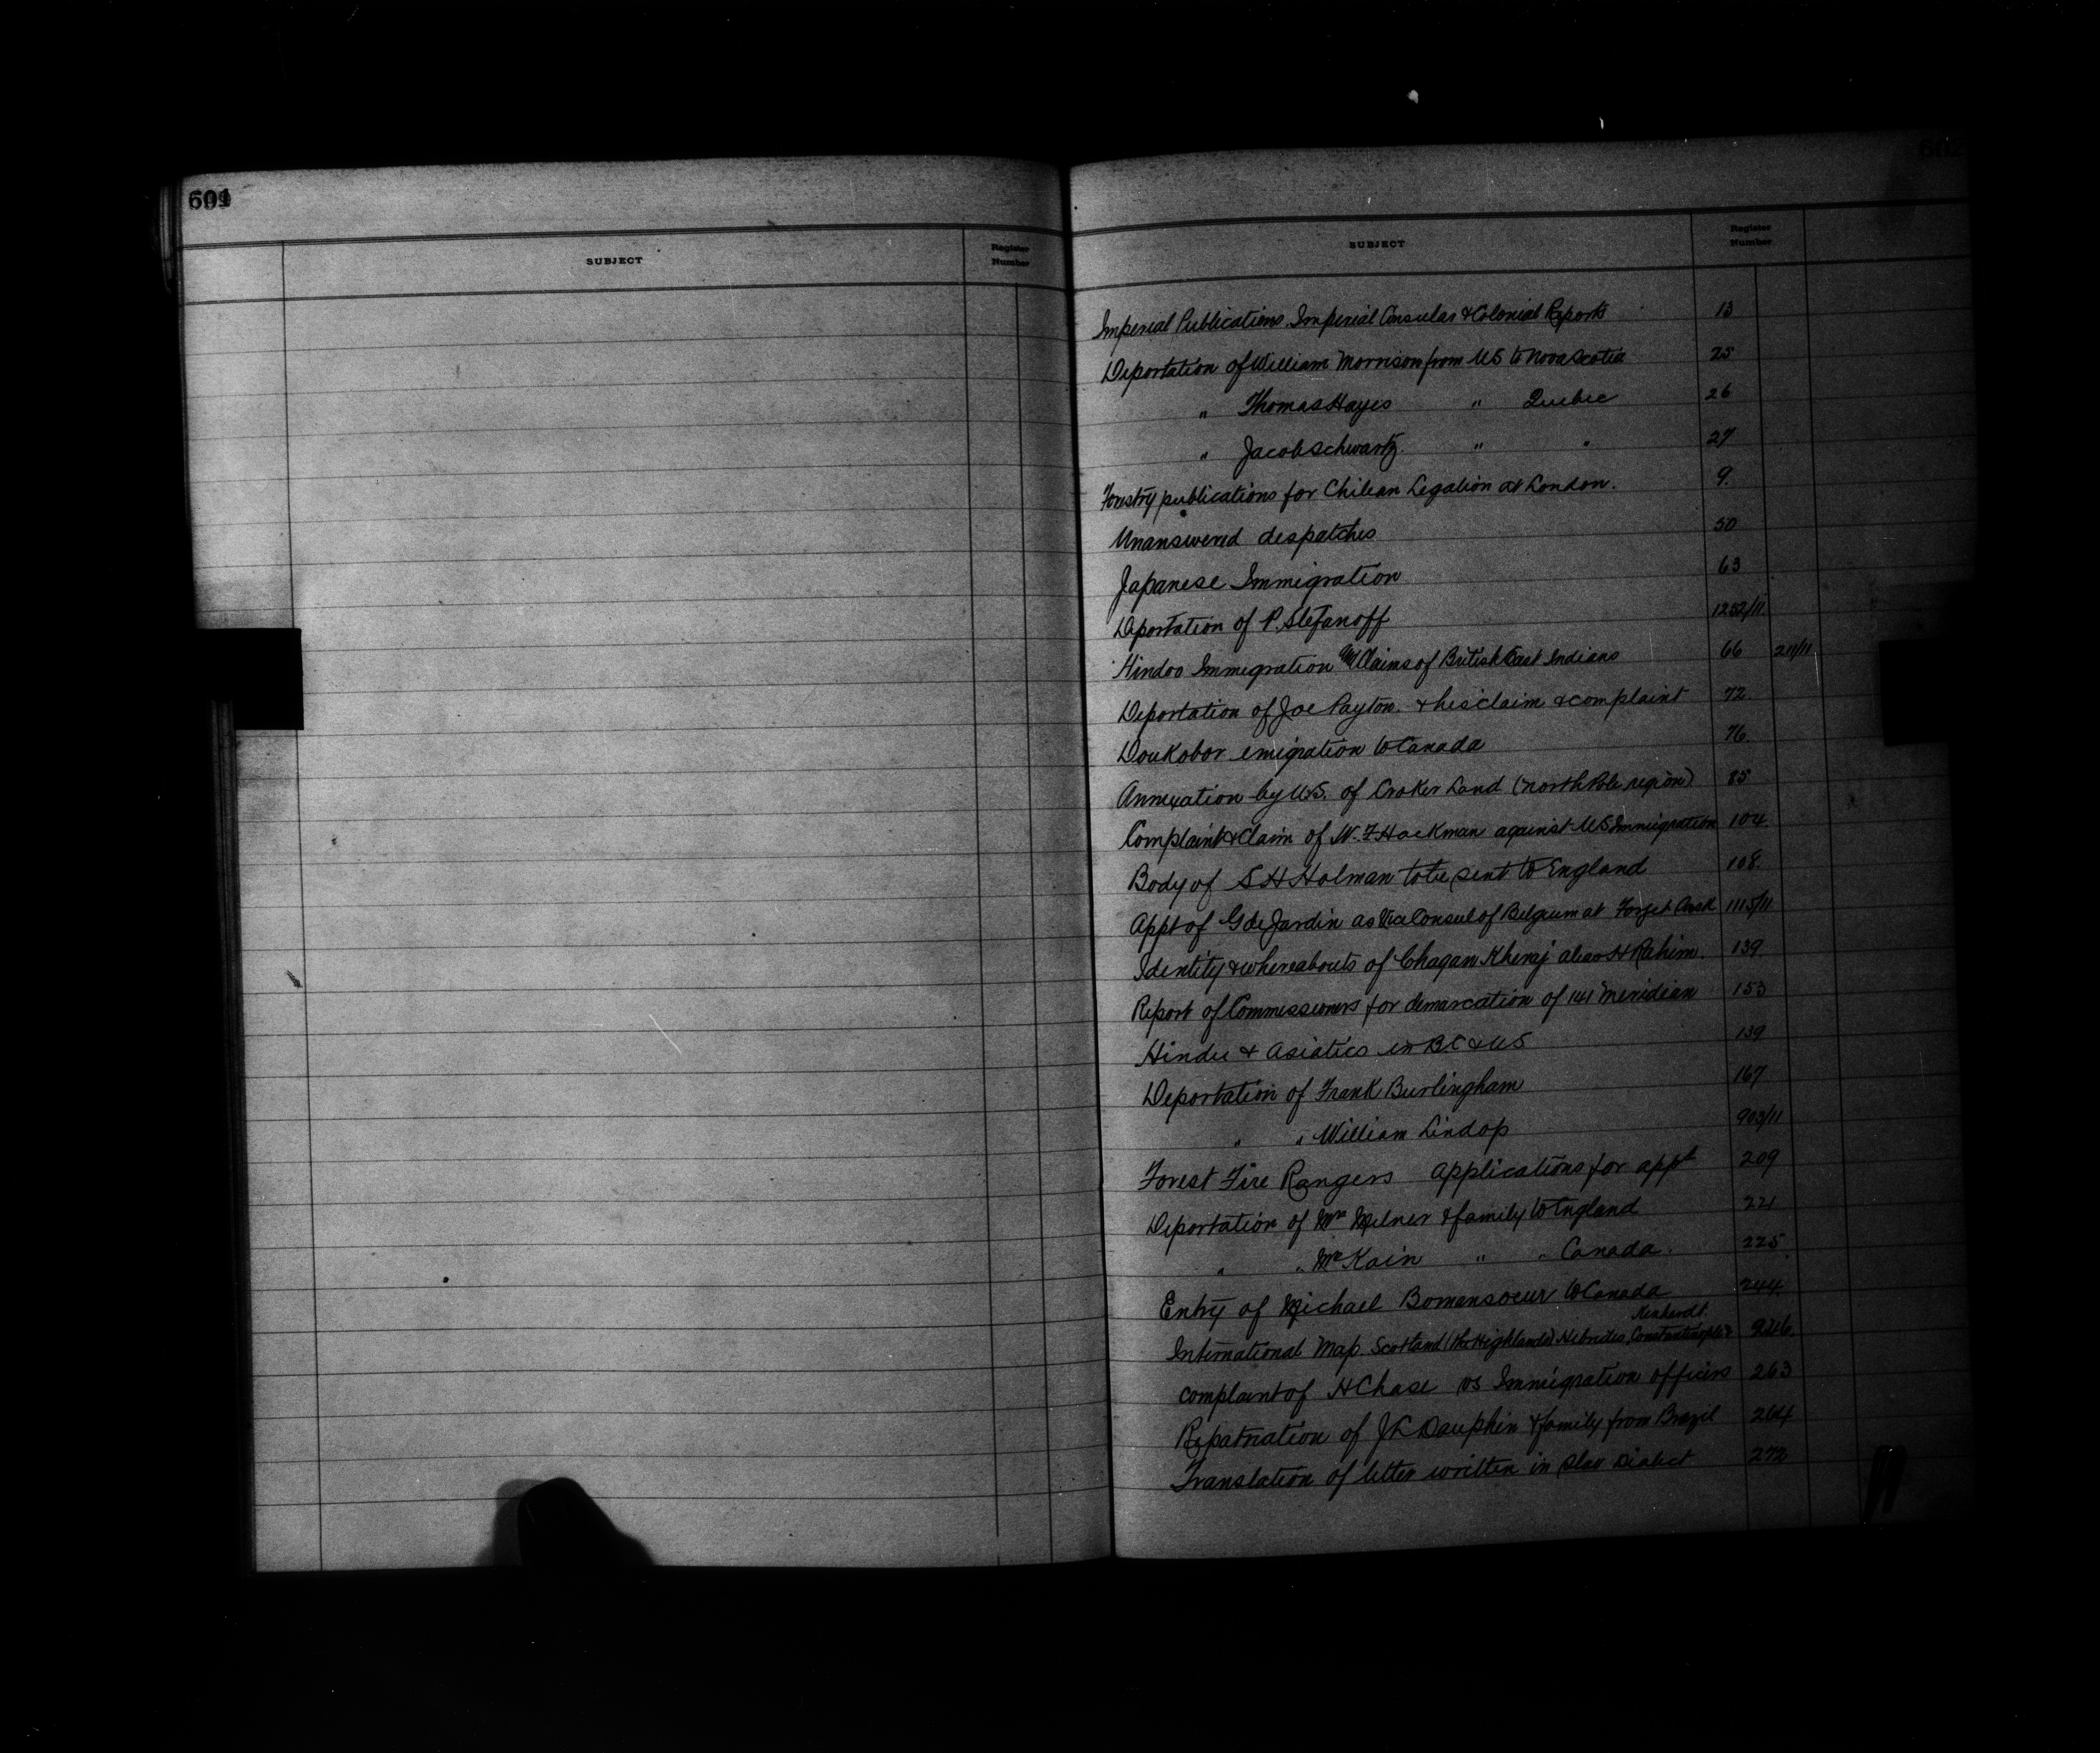 601
SUBJECT
Register
Number
602
SUBJECT
Register
Number
Imperial Publications. Imperial Consular & Colonial Reports 13
Deportation of William Morrison from US to Nova Scotia 25
" Thomas Hayes " Quebec 26
" Jacob Schwartz " " 27
Forestry publications for Chilean Legation at London. 9.
Unanswered despatches 50
Japanese Immigration 63
Deportation of P. Stefanoff 1252/11
Hindoo Immigration Claims of British East Indians 66 211/11
Deportation of Joe Payton. & his claim & complaint 72.
Doukobor emigration to Canada 76.
Annexation by U.S. of Croker Land (North Pole region) 85
Complaint & Claim of W. F Hackman against US Immigration 104
Body of S H Holman to be sent to England 108.
Appt of G de Jardin as Vice Consul of Belgium at Forget Sask 1115/11
Identity & whereabouts of Chagan Kheraj alias H Rahim. 139
Report of Commissioners for demarcation of 141 Meridian 153
Hindu & Asiatics in B.C & US 139
Deportation of Frank Burlingham 167
" " William Lindop 903/11
Forest Fire Rangers applications for appt 209
Deportation of Mr Milner & family to England 221
" " McKain " " Canada. 225
Entry of Michael Bomansoeur to Canada 244.
Kenhardt.
International Map. Scotland (the Highlands) Hebrides, Constantinople & 246.
complaint of H Chase vs Immigration officers 263
Repatriation of J L Dauphin & family from Brazil 264
Translation of letter written in Slav Dialect 273